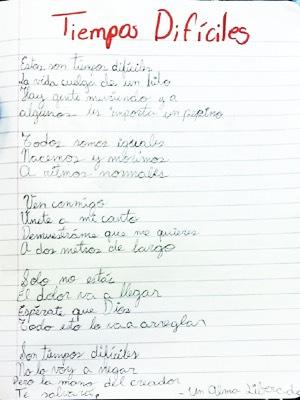 Tiempos Difíciles
Estos son tiempos difíciles
La vida cuelga de un hilo
Hay gente muriendo y a
algunos les importa un pepino
Todos somos iguales
Nacemos y morimos
A ritmos normales
Ven conmigo
Unete a mi canto
Demuestrame que me quieres
A dos metros de largo
Solo no estás
El dolor va a llegar
Espérate que Dios
Todo esto lo va a arreglar
Son tiempos difíciles
No lo voy a negar
Pero la mano del creador
Te salvará
- Un Alma Liberada